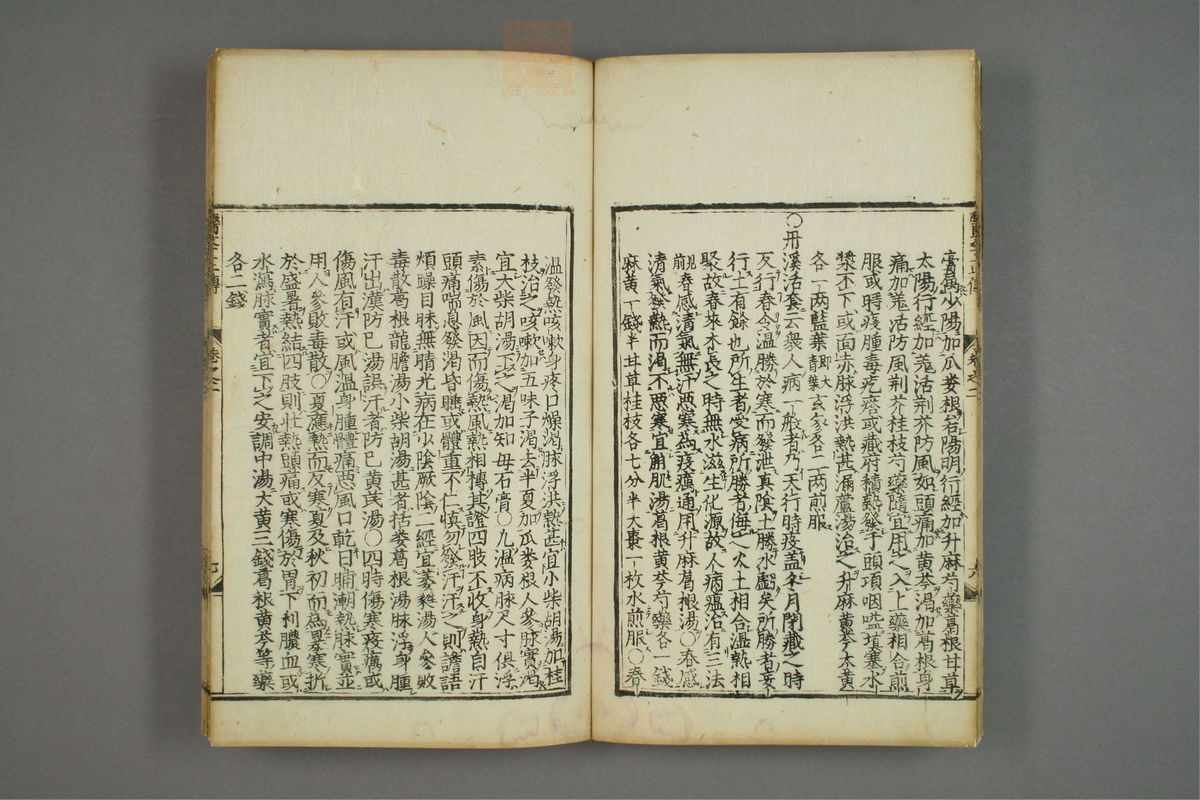 膏屬少陽加瓜蔞根若陽明行經加升麻芍藥葛根甘草
太陽行經加羗活荆芥防風如頭痛加黄芩渴加葛根身
痛加羗活防風荆芥桂枝芍藥隨宜用之入上藥相合煎
服或時疫腫毒疙瘩或藏府積熱發于頭項咽嗌塡塞水
漿不下或面赤脉浮洪熱甚漏蘆湯治之升麻黄芩大黄
各一两藍葉即大青葉玄参各二两煎服
〇丹溪活套云衆人病一般者乃天行時疫盖冬月閉藏之時
反行春令温勝於寒而發泄真陰土勝水虧矣所勝者妄
行土有餘也所生者受病所勝者侮之火土相合温熱相
聚故春來木長之時無水滋生化源故人病瘟治有三法
見前春感清氣無汗悪寒為疫癘通用升麻葛根湯〇春感
清氣發熱而渴不悪寒宜解肌湯葛根黄芩芍藥各一錢
麻黄一錢半甘草桂枝各七分半大棗一枚水煎服〇春
温發熱咳嗽身疼口燥渴脉浮洪熱甚宜小柴胡湯加桂
枝治之咳嗽加五味子渴去半夏加瓜蔞根人参脉實渴
宜大柴胡湯下之渴加知母石膏〇凢温病脉尺寸俱浮
素傷於風因而傷熱風熱相搏其證四肢不收身熱自汗
頭痛喘息發渴昏睡或體重不仁慎勿發汗汗之則譫語
煩躁目昧無睛光病在少陰厥陰二經宜葳蕤湯人參敗
毒散葛根龍膽湯小柴胡湯甚者括蔞葛根湯脉浮身腫
汗出漢防已湯誤汗者防已黄芪湯〇四時傷寒疫癘或
傷風有汗或風温身腫體痛悪風口乾日晡潮熱脉實並
用人參敗毒散〇夏應熱而反寒夏及秋初而為暴寒折
於盛暑熱結四肢則壯熱頭痛或寒傷於胃下利膿血或
水瀉脉實者宜下之安調中湯大黄三錢葛根黄芩等藥
各二錢